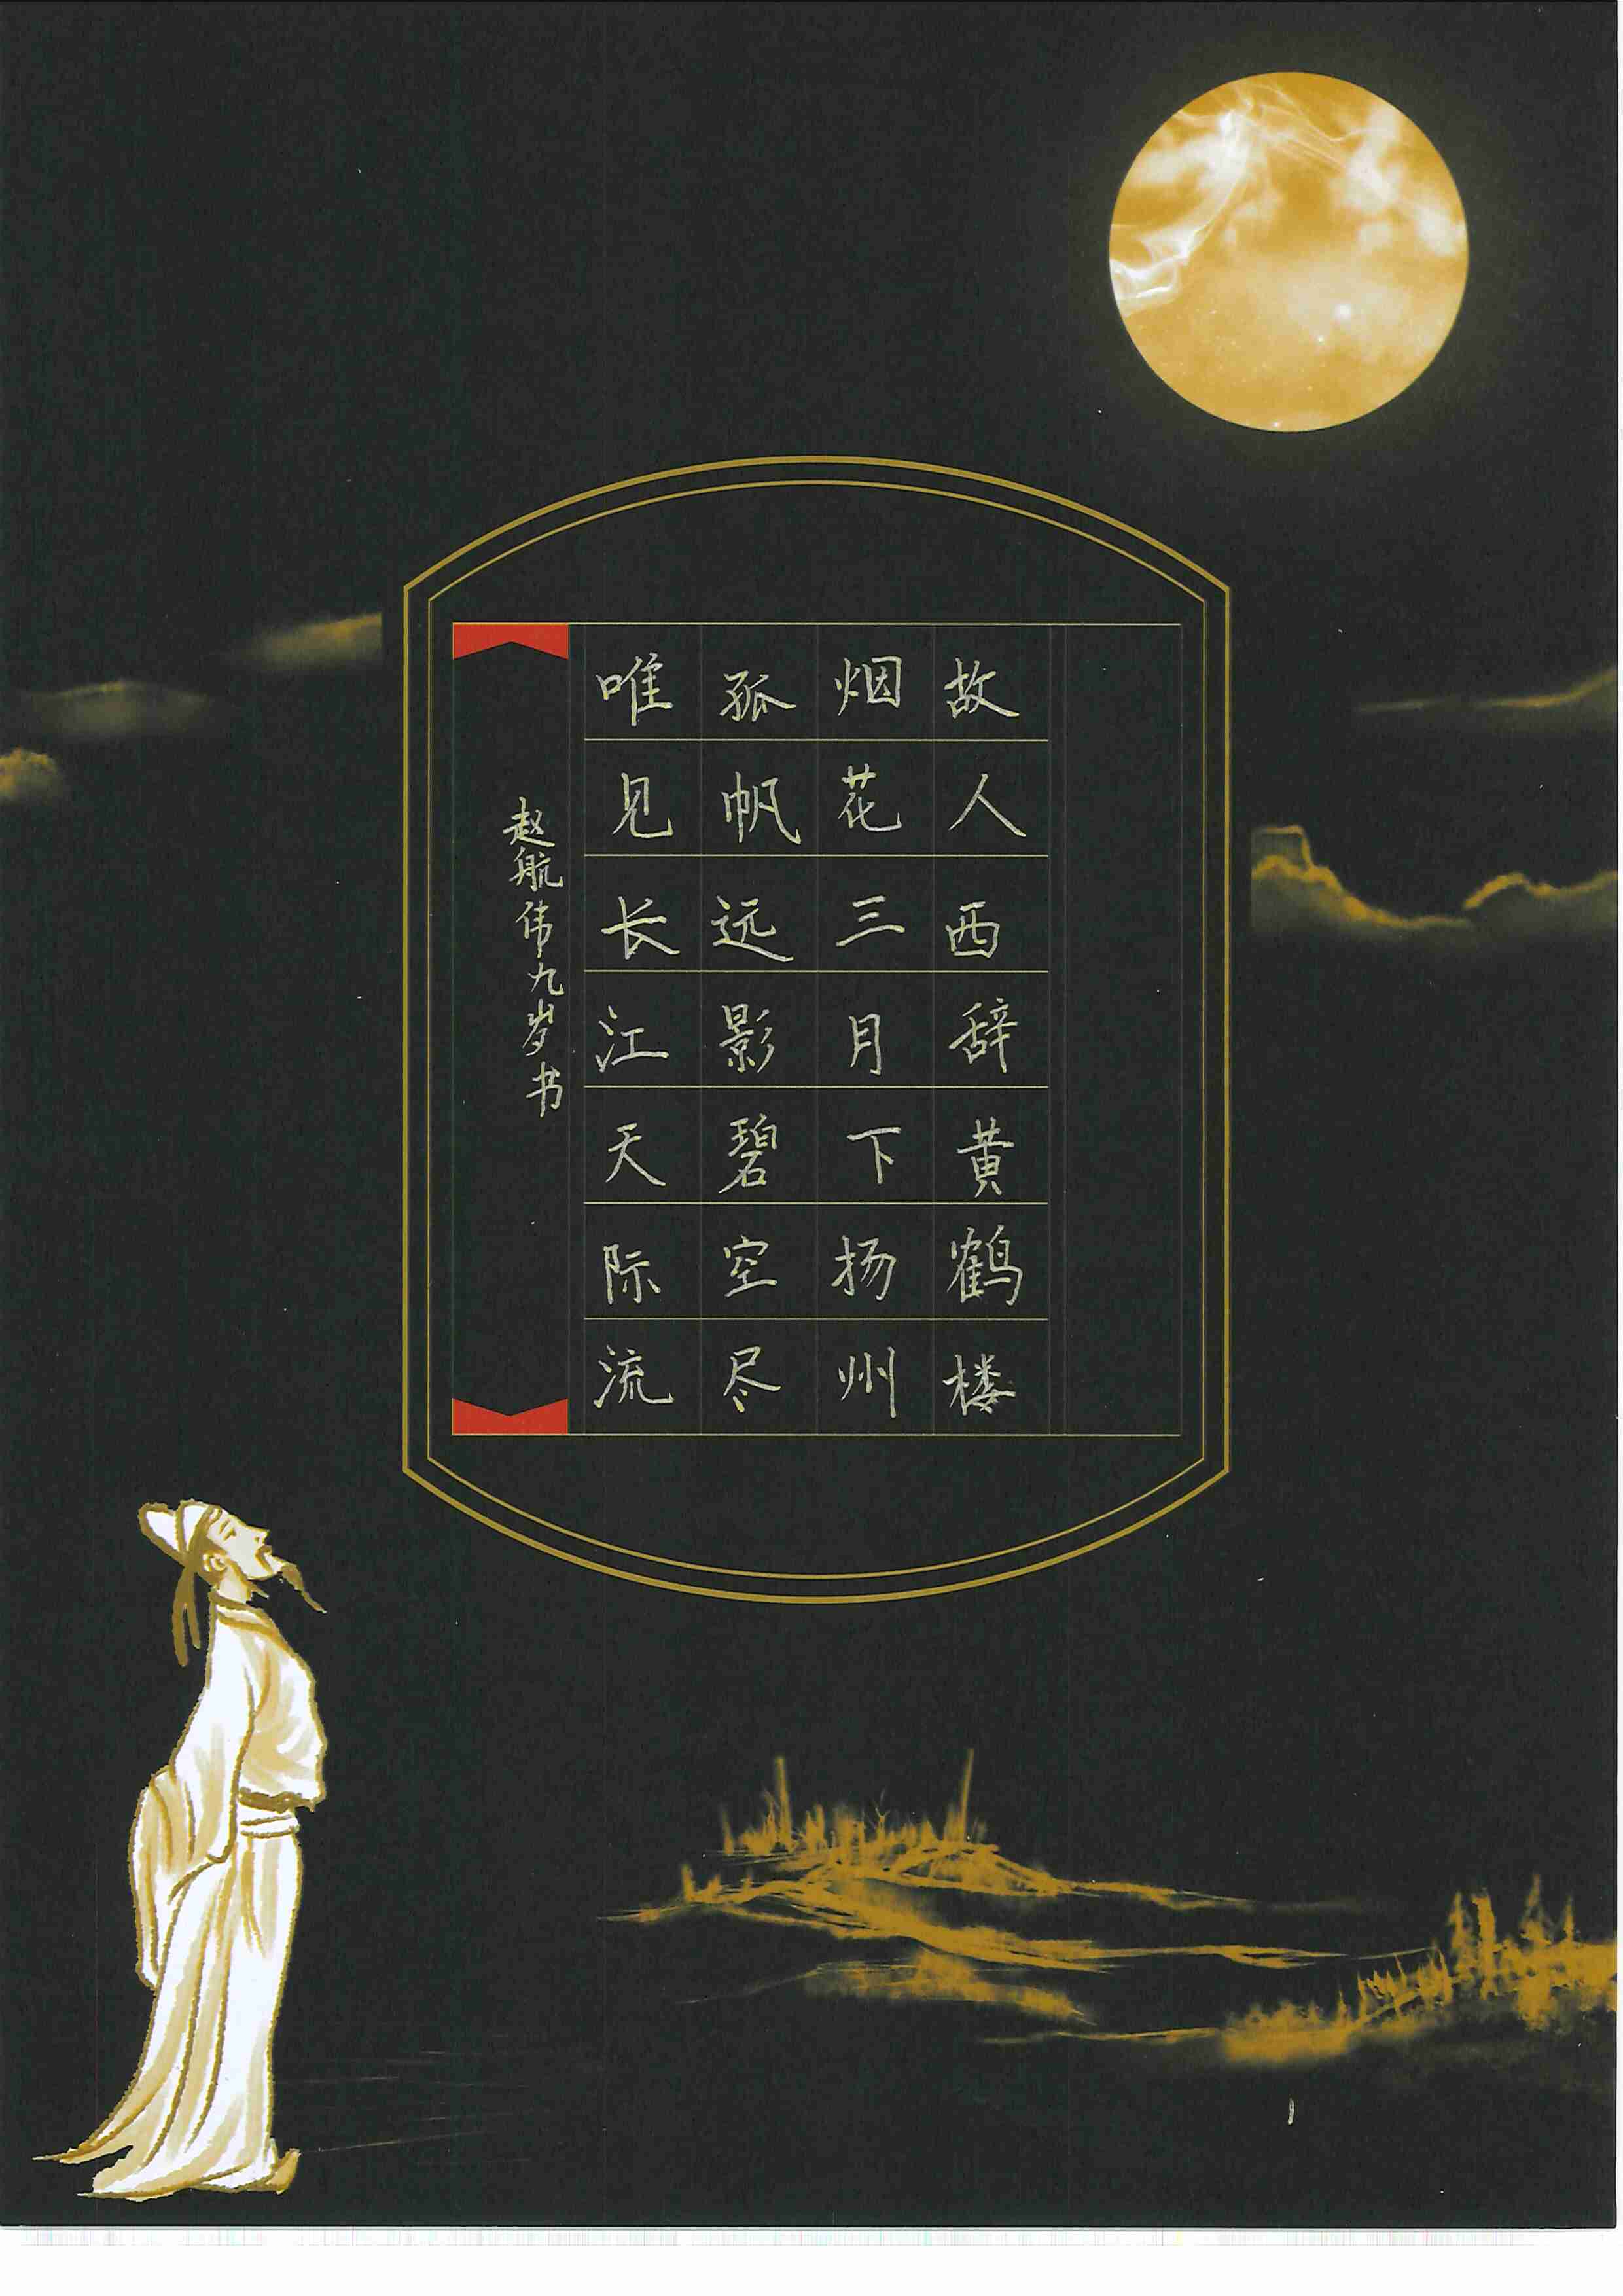 故人西辞黄鹤楼
烟花三月下扬州
孤帆远影碧空尽
唯见长江天际流
赵航伟九岁书